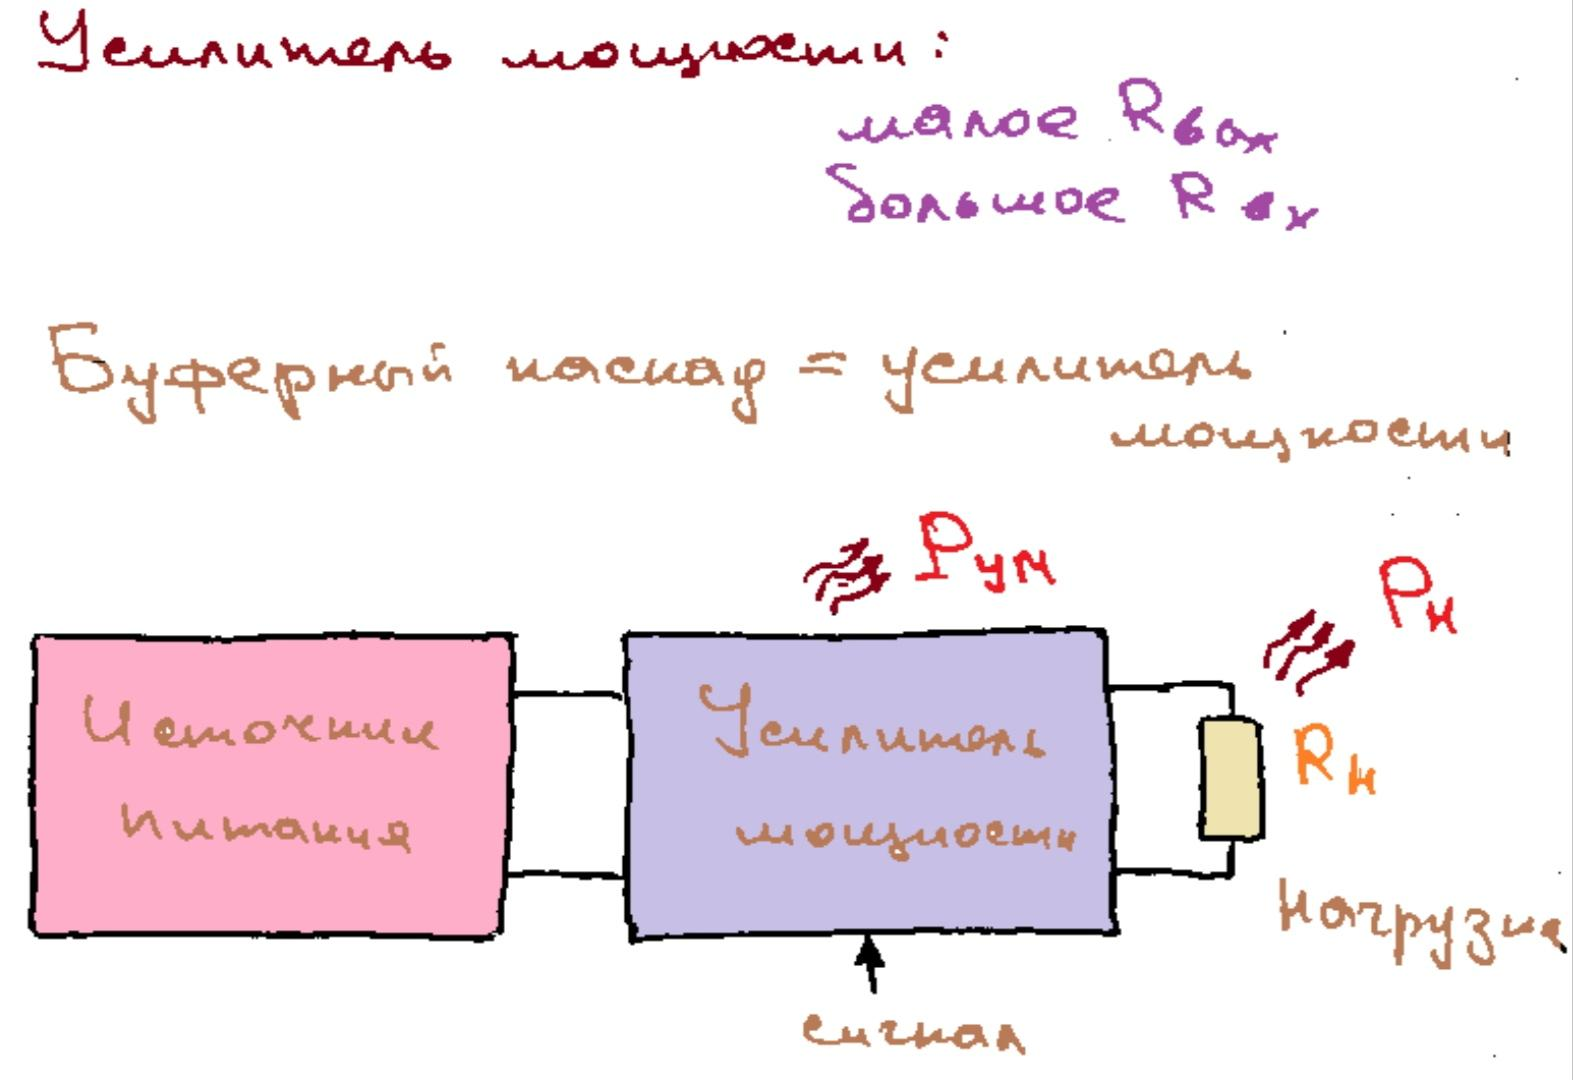 Усилитель мощности:
малое Rвых
большое Rвх
Буферный каскад = усилитель
мощности
Pум
Pн
Источник
питания
Усилитель
мощности
Rн
нагрузка
сигнал